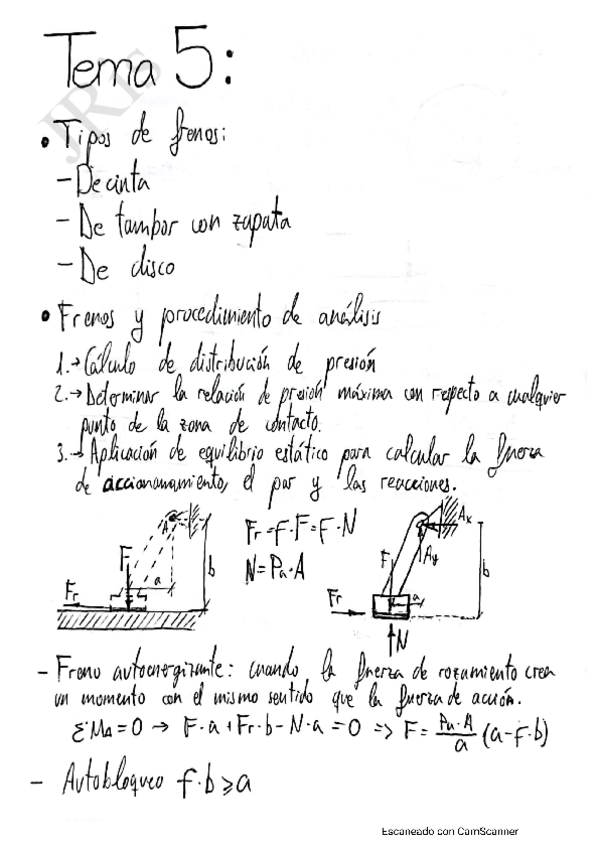 Tema 5:
JRTs
• Tipos de frenos:
- De cinta
- De tambor con zapata
- De disco
• Frenos y procedimiento de análisis
1.→ Cálculo de distribución de presión
2.→ Determinar la relación de presión máxima con respecto a cualquier
punto de la zona de contacto.
3.→ Aplicación de equilibrio estático para calcular la fuerza
de accionamamiento, el par y las reacciones.
A
F
a
b
Fr
Fr = f·F = f·N
N = Pa·A
Ax
Ay
F
a
b
Fr
N
- Freno autoenergizante: cuando la fuerza de rozamiento crea
un momento con el mismo sentido que la fuerza de acción.
ΣMA = 0 → F·a + Fr·b - N·a = 0 => F = Pa·A/a (a-f·b)
- Autobloqueo f·b ⩾ a
Escaneado con CamScanner